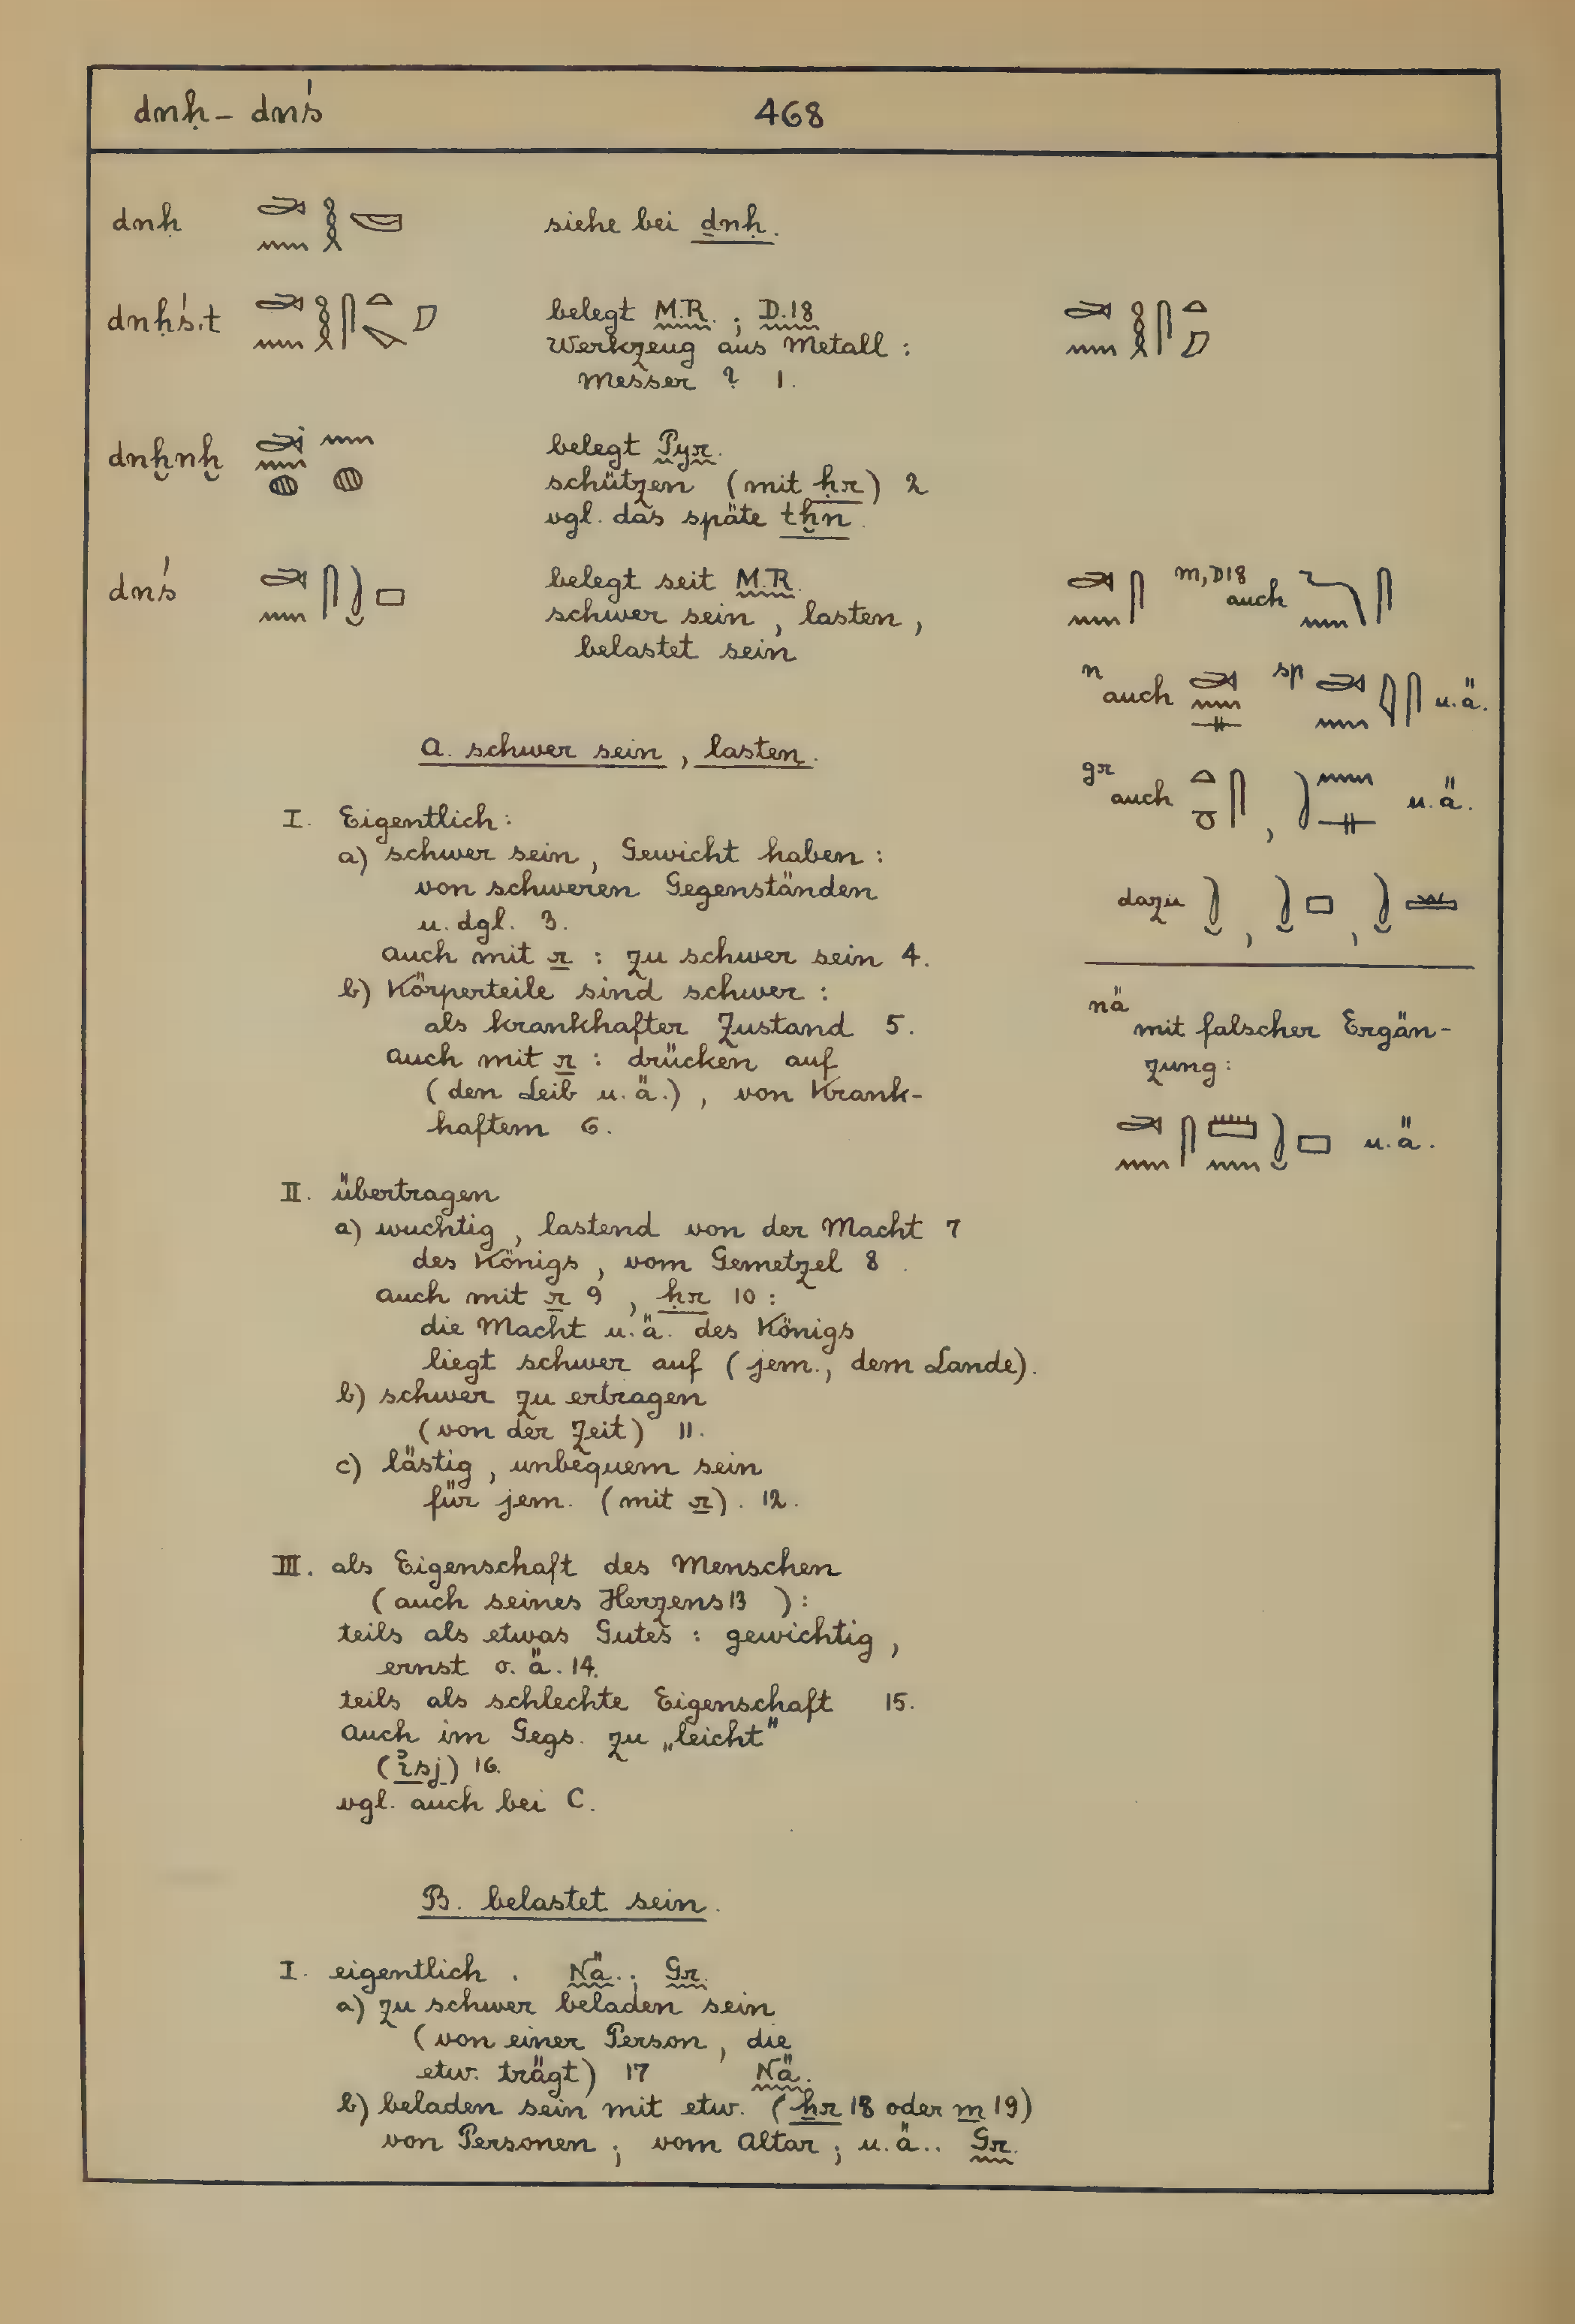 dnḥ – dnś
468
dnḥ siehe bei ḏnḥ.
dnḥś.t belegt M.R. ; D.18
Werkzeug aus Metall :
Messer ? 1.
dnḫnḫ belegt Pyr.
schützen (mit ḥr) 2
vgl. das späte tḫn.
dnś belegt seit M.R.
schwer sein, lasten,
belastet sein
m, D18 auch
n auch
sp u.ä.
gr auch , u.ä.
dazu , ,
nä mit falscher Ergän-
zung :
u.ä.
A. schwer sein, lasten.
I. Eigentlich :
a) schwer sein, Gewicht haben :
von schweren Gegenständen
u. dgl. 3.
auch mit r : zu schwer sein 4.
b) Körperteile sind schwer :
als krankhafter Zustand 5.
auch mit r : drücken auf
(den Leib u.ä.), von Krank-
haftem 6.
II. übertragen
a) wuchtig, lastend von der Macht 7
des Königs, vom Gemetzel 8.
auch mit r 9, ḥr 10 :
die Macht u.ä. des Königs
liegt schwer auf (jem., dem Lande).
b) schwer zu ertragen
(von der Zeit) 11.
c) lästig, unbequem sein
für jem. (mit r). 12.
III. als Eigenschaft des Menschen
(auch seines Herzens 13 ) :
teils als etwas Gutes : gewichtig,
ernst o.ä. 14.
teils als schlechte Eigenschaft 15.
auch im Gegs. zu „leicht"
(ỉsj) 16.
vgl. auch bei C.
B. belastet sein.
I. eigentlich. Nä. ; Gr.
a) zu schwer beladen sein
(von einer Person, die
etw. trägt) 17 Nä.
b) beladen sein mit etw. (ẖr 18 oder m 19)
von Personen ; vom Altar ; u.ä.. Gr.